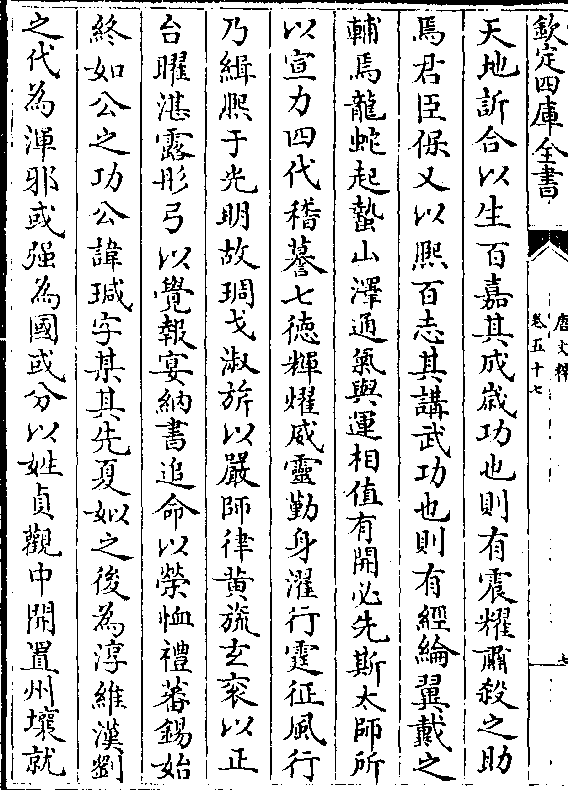 欽定四庫全書
唐文粹
卷五十七
七
天地訢合以生百嘉其成歳功也則有震耀肅殺之助
焉君臣保乂以熙百志其講武功也則有經綸翼戴之
輔焉龍蛇起蟄山澤通氣與運相值有開必先斯太師所
以宣力四代稽謩七徳輝燿威靈勤身濯行霆征風行
乃緝熙于光明故琱戈淑旂以嚴師律黄旒玄衮以正
台曜湛露彤弓以覺報宴納書追命以榮恤禮蕃錫始
終如公之功公諱瑊字某其先夏姒之後為淳維漢劉
之代為渾邪或强為國或分以姓貞觀中開置州壤就